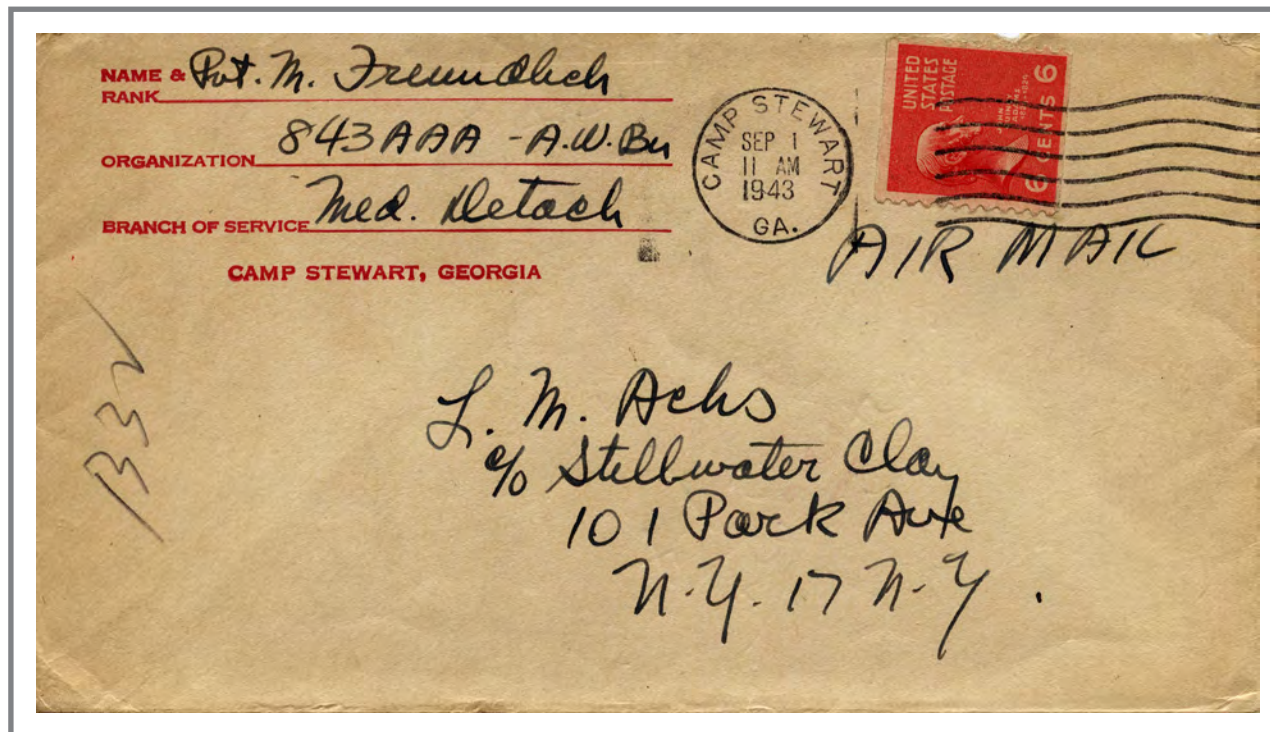 NAME & Pvt. M. Freundlich
RANK
ORGANIZATION 843 AAA - A.W. Bn
BRANCH OF SERVICE Med. Detach
CAMP STEWART, GEORGIA
CAMP STEWART
SEP 1
11 AM
1943
GA.
UNITED
STATES
POSTAGE
JOHN
QUINCY
ADAMS
6 CENTS 6
AIR MAIL
B32
L. M. Achs
c/o Stillwater Clay
101 Park Ave
N.Y. 17 N.Y.